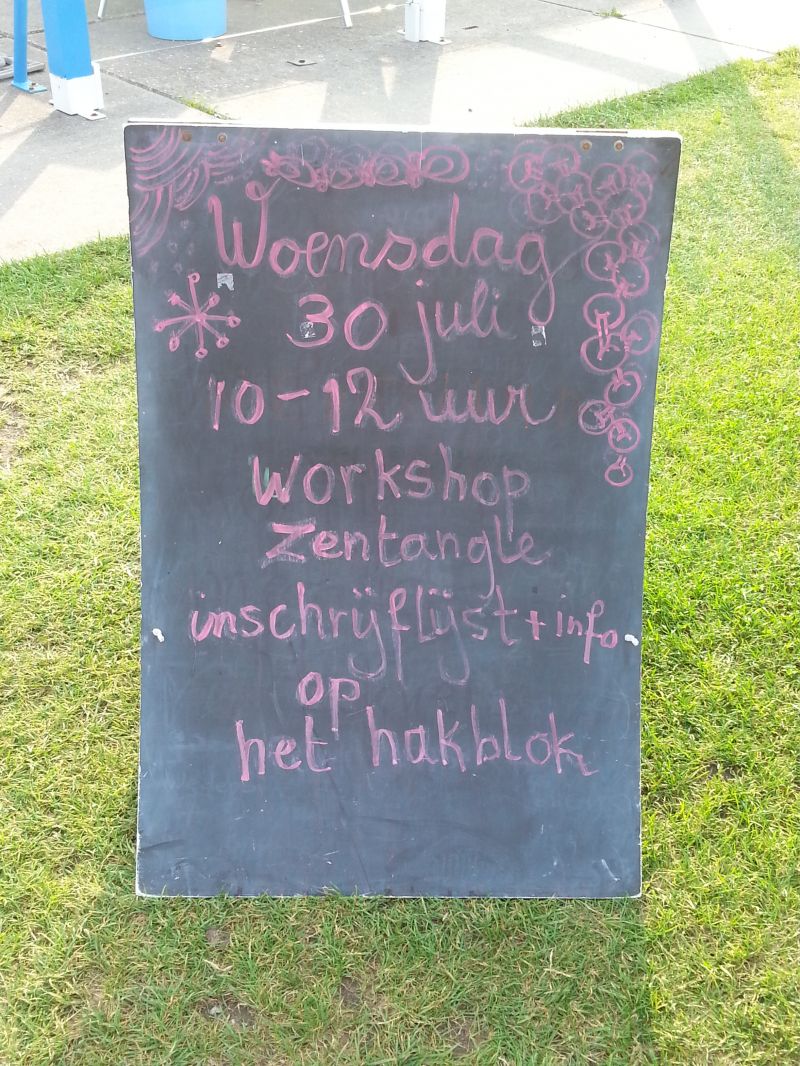 Woensdag
30 juli
10-12 uur
workshop
zentangle
inschrijflijst + info
op
het hakblok